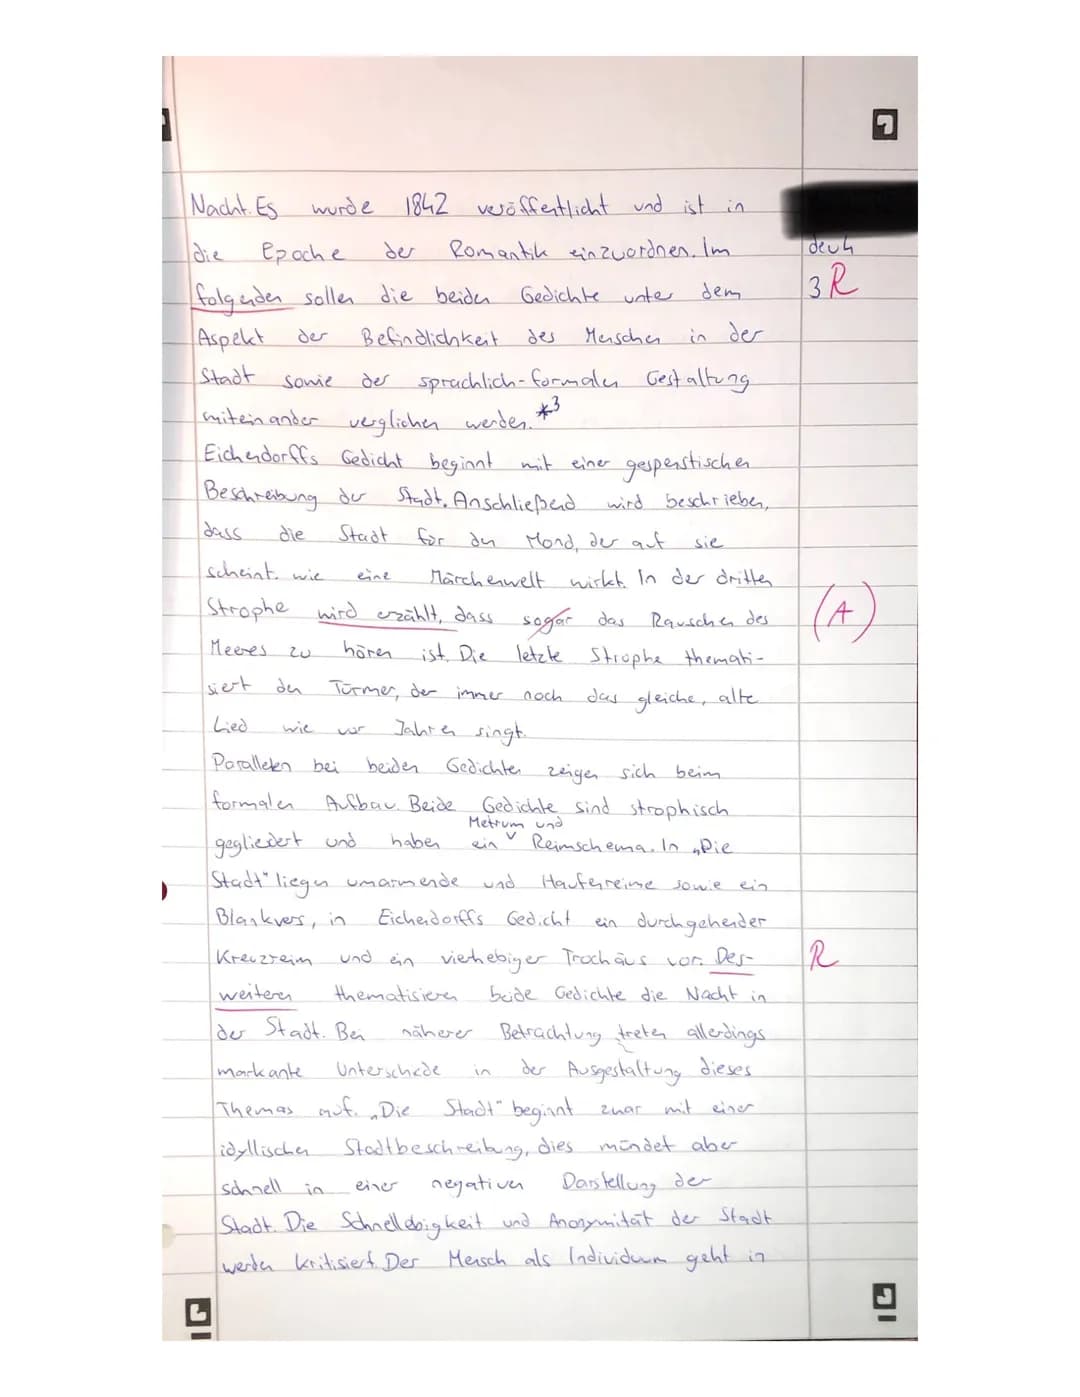 Nacht. Es wurde 1842 veröffentlicht und ist in
die Epoche der Romantik einzuordnen. Im
folgenden sollen die beiden Gedichte unter dem
3 R
Aspekt der Befindlichkeit des Menschen in der
Stadt sowie der sprachlich-formalen Gestaltung
miteinander verglichen werden. *3
Eichendorffs Gedicht beginnt mit einer gespenstischen
Beschreibung der Stadt. Anschließend wird beschrieben,
dass die Stadt für den Mond, der auf sie
scheint, wie eine Märchenwelt wirkt. In der dritten
Strophe wird erzählt, dass sogar das Rauschen des
(A)
Meeres zu hören ist. Die letzte Strophe themati-
siert den Türmer, der immer noch das gleiche, alte
Lied wie vor Jahren singt.
Parallelen bei beiden Gedichten zeigen sich beim
formalen Aufbau. Beide Gedichte sind strophisch
Metrum und
gegliedert und haben ein v Reimschema. In „Die
Stadt" liegen umarmende und Haufenreime sowie ein
Blankvers, in Eichendorffs Gedicht ein durchgehender
Kreuzreim und ein vierhebiger Trochäus vor. Des-
R
weiteren thematisieren beide Gedichte die Nacht in
der Stadt. Bei näherer Betrachtung treten allerdings
markante Unterschede in der Ausgestaltung dieses
Themas auf. „Die Stadt" beginnt zwar mit einer
idyllischen Stadtbeschreibung, dies mündet aber
schnell in einer negativen Darstellung der
Stadt. Die Schnelllebigkeit und Anonymität der Stadt
werden kritisiert. Der Mensch als Individuum geht in